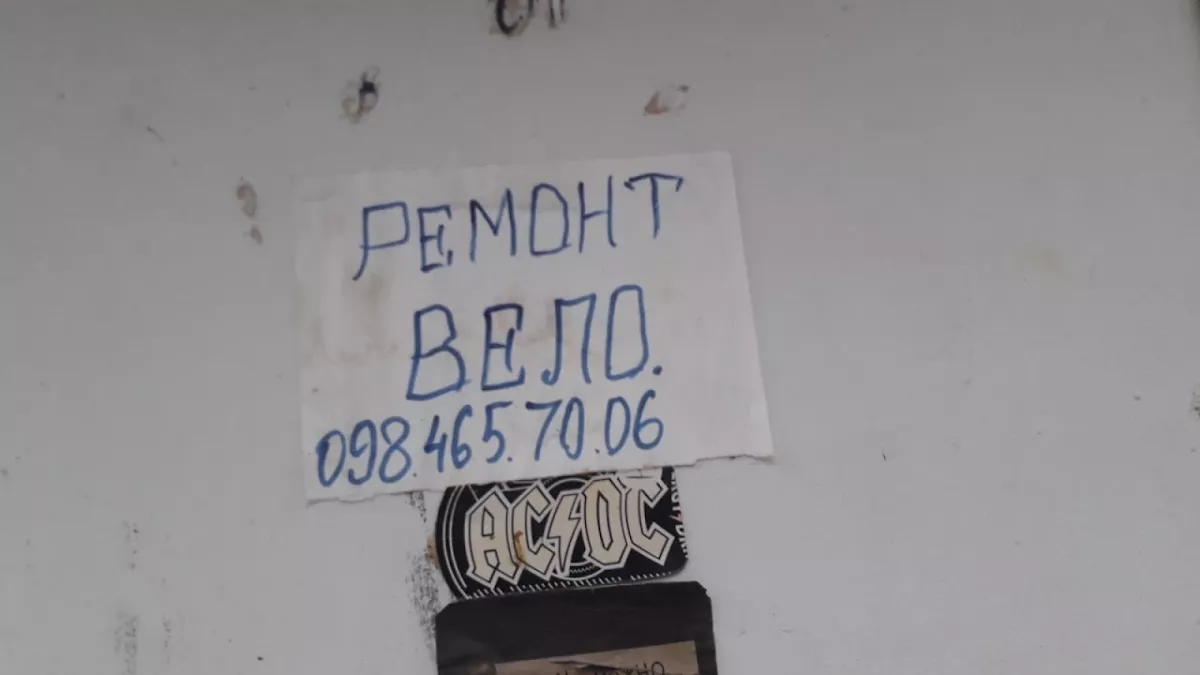 РЕМОНТ
ВЕЛО.
098.465.70.06
AC/DC